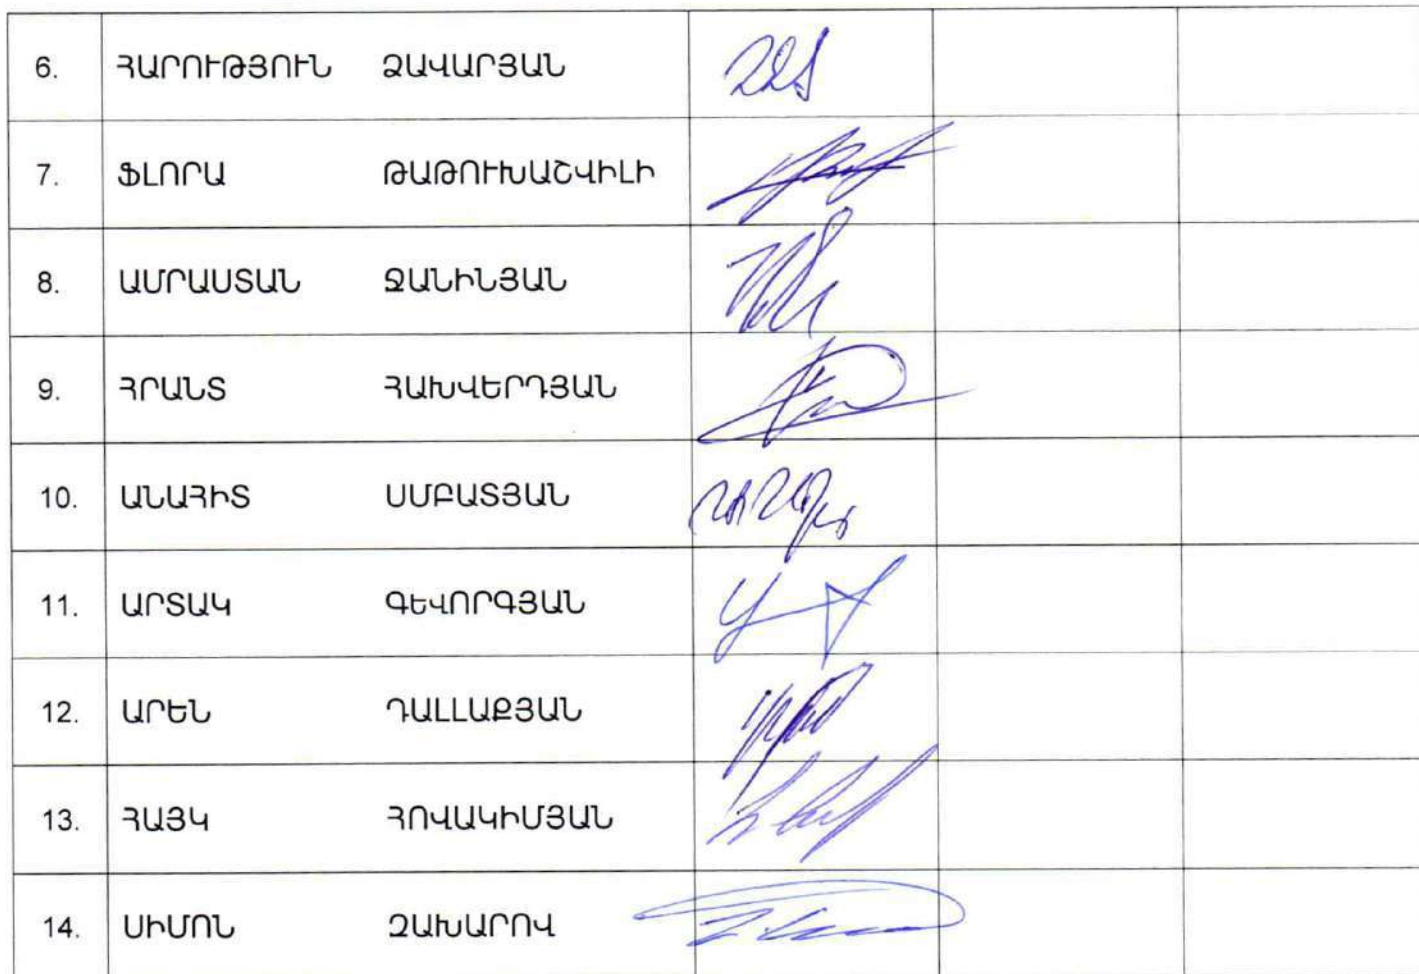 6. ՀԱՐՈՒԹՅՈՒՆ ՁԱՎԱՐՅԱՆ
7. ՖԼՈՐԱ ԹԱԹՈՒԽԱՇՎԻԼԻ
8. ԱՄՐԱՍՏԱՆ ՋԱՆԻՆՅԱՆ
9. ՀՐԱՆՏ ՀԱԽՎԵՐԴՅԱՆ
10. ԱՆԱՀԻՏ ՍՄԲԱՏՅԱՆ
11. ԱՐՏԱԿ ԳԵՎՈՐԳՅԱՆ
12. ԱՐԵՆ ԴԱԼԼԱՔՅԱՆ
13. ՀԱՅԿ ՀՈՎԱԿԻՄՅԱՆ
14. ՍԻՄՈՆ ԶԱԽԱՐՈՎ